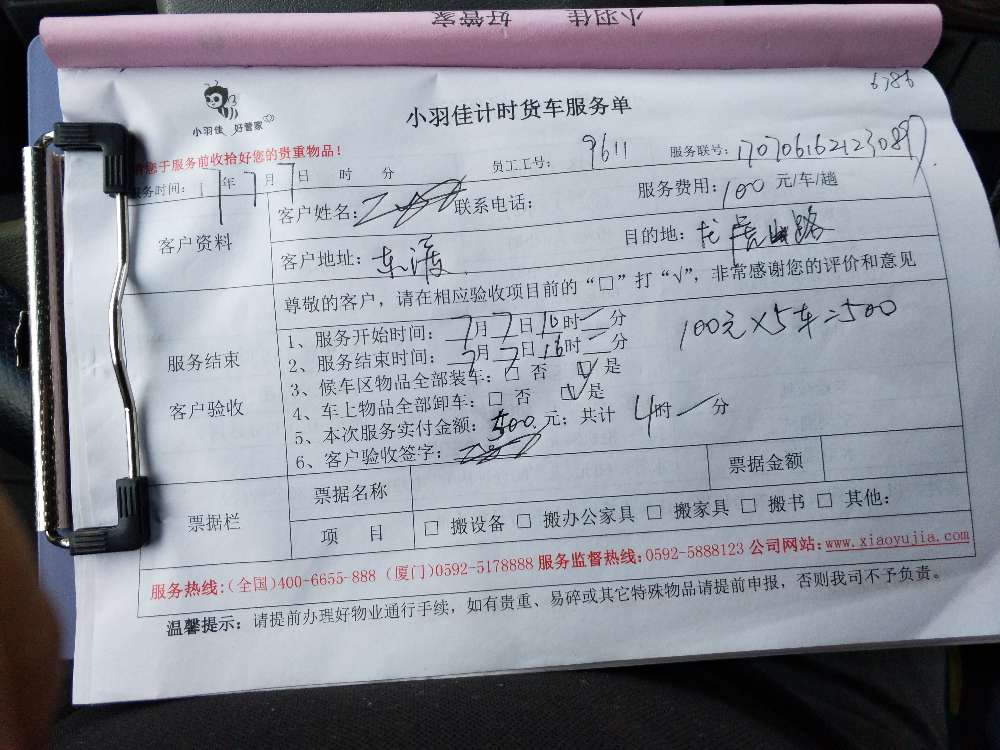 小羽佳 好管家
6786
小羽佳 好管家
小羽佳计时货车服务单
您于服务前收拾好您的贵重物品！
服务时间：17年7月7日 时 分 员工工号：9611 服务联号：
客户资料
客户姓名： 联系电话： 服务费用：100元/车/趟
客户地址：东渡 目的地：龙虎山路
尊敬的客户，请在相应验收项目前的“□”打“√”，非常感谢您的评价和意见
服务结束
客户验收
1、服务开始时间：7月7日 时 分
100元×5车=500
2、服务结束时间：7月7日16时 分
3、候车区物品全部装车：□ 否 □ 是
4、车上物品全部卸车：□ 否 □ 是
5、本次服务实付金额：500元；共计 4时 分
6、客户验收签字：
票据栏
票据名称 票据金额
项 目 □ 搬设备 □ 搬办公家具 □ 搬家具 □ 搬书 □ 其他：
服务热线：(全国)400-6655-888 (厦门)0592-5178888 服务监督热线：0592-5888123 公司网站：www.xiaoyujia.com
温馨提示：请提前办理好物业通行手续，如有贵重、易碎或其它特殊物品请提前申报，否则我司不予负责。